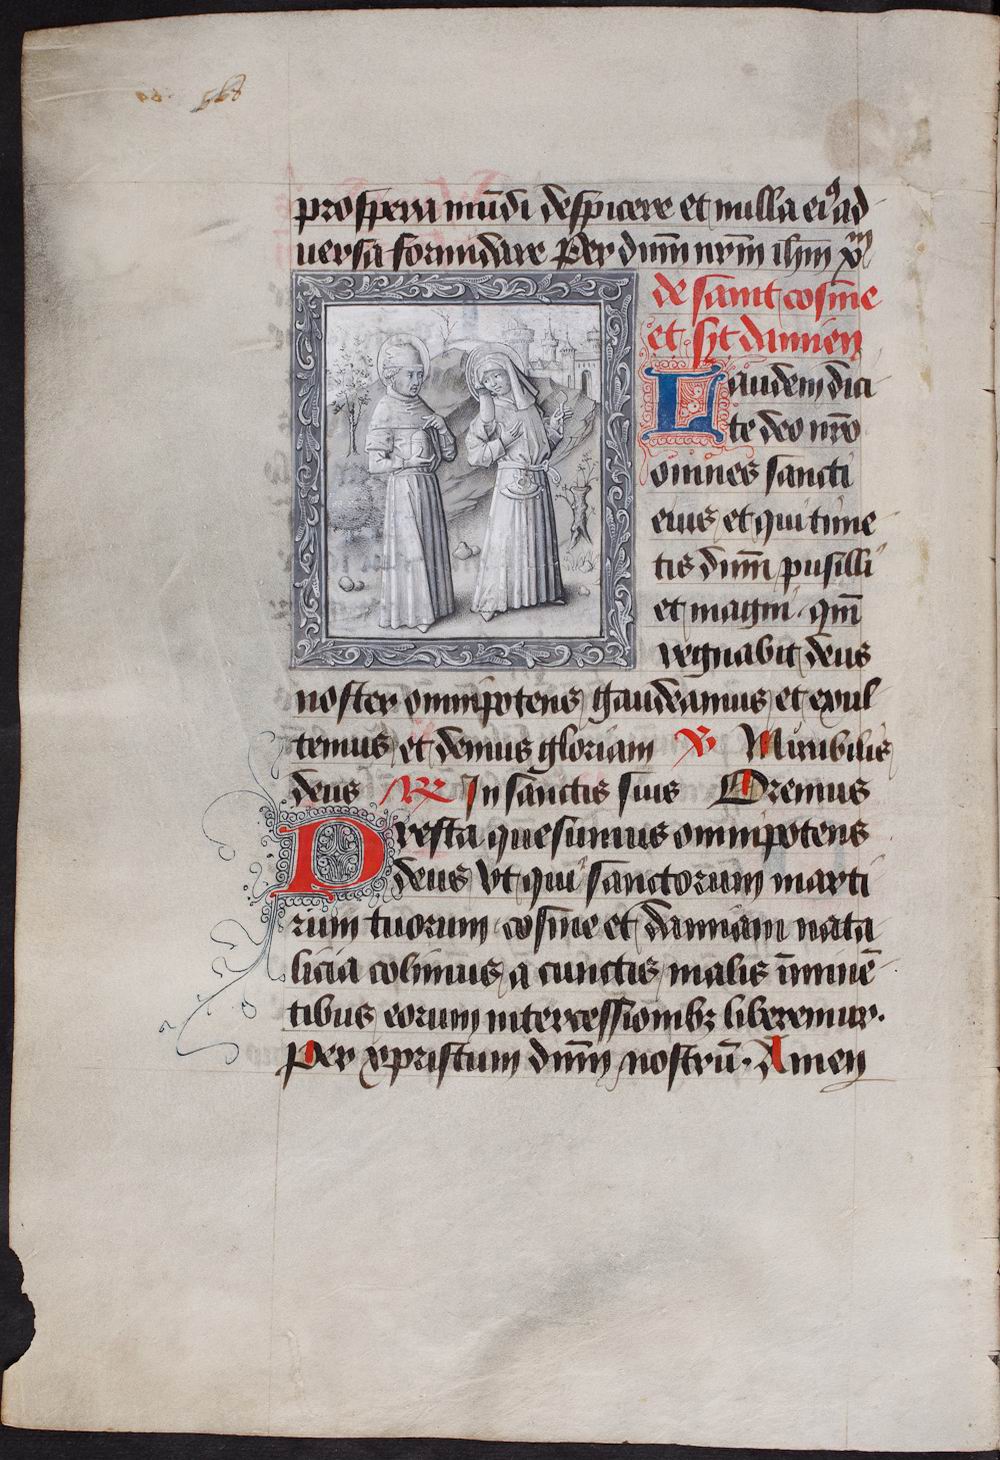 prospera mūdi despicere et nulla eiꝰ ad
uersa formidare Per dnm̄ nrm̄ ihm xp̄m
de saint cosme
et sȳt damien
Laudem dici
te deo nr̄o
omnes sancti
eius et qui time
tis dnm̄ pusilli
et magni. qm̄
regnabit deus
noster omnipotens gaudeamus et exul
temus et demus gloriam ℣ Mirabilis
deus ℟ In sanctis suis Oremus
Presta quesumus omnipotens
deus vt qui sanctorum marti
rum tuorum cosme et damiani nata
licia colimus a cunctis malis īminē
tibus eorum intercessionibꝫ liberemur.
Per xpristum dnm̄ nostrū. Amen